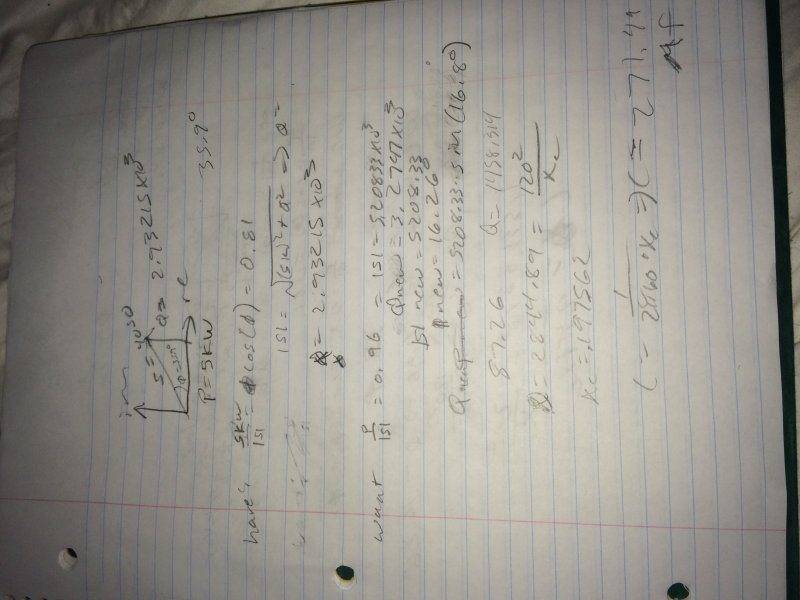 im
S = 4050
Q = 2.93215 x10³
re
P=5KW
35.9°
have:
5KW / |S| = cos(ϕ) = 0.81
|S| = √(5K)² + Q² => Q =
= 2.93215 x10³
want P / |S| = 0.96 = |S| = 5.20833x10³
Qnew = 3.2747 x10³
|S| new = 5208.33
new = 16.26°
Qnew = 5208.33 · sin(16.8°)
87.26 Q = 1458.3
= 2844.89 = 120² / Xc
Xc = .197562
C = 1 / 2π60·Xc => C = 271.4